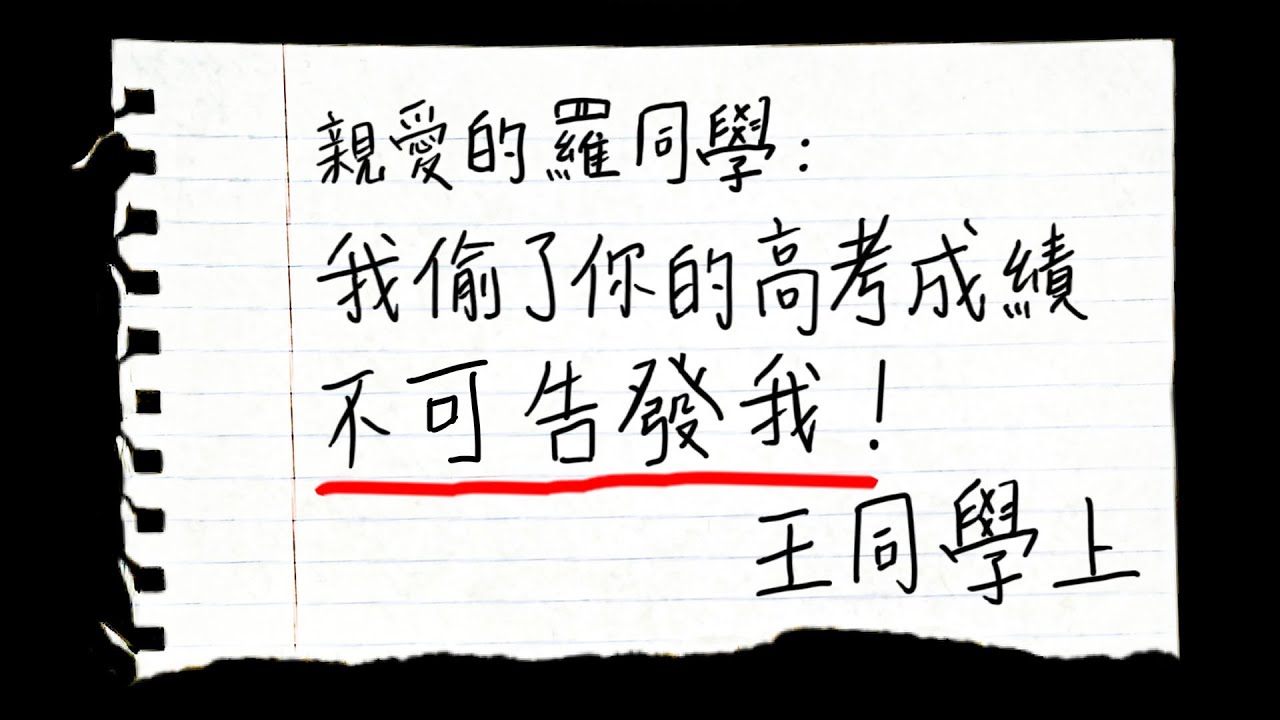 親愛的羅同學：
我偷了你的高考成績
不可告發我！
王同學上